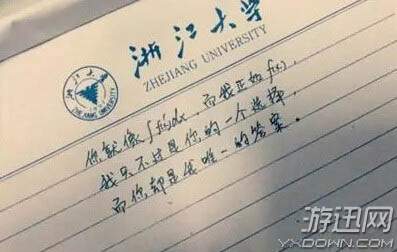 浙江大学
ZHEJIANG UNIVERSITY
浙江大学
ZHE JIANG UNIVERSITY
你就像∫f(x)dx，而我正如f(x)，
我只不过是你的一个选择，
而你却是我唯一的答案。
游迅网
YXDOWN.COM